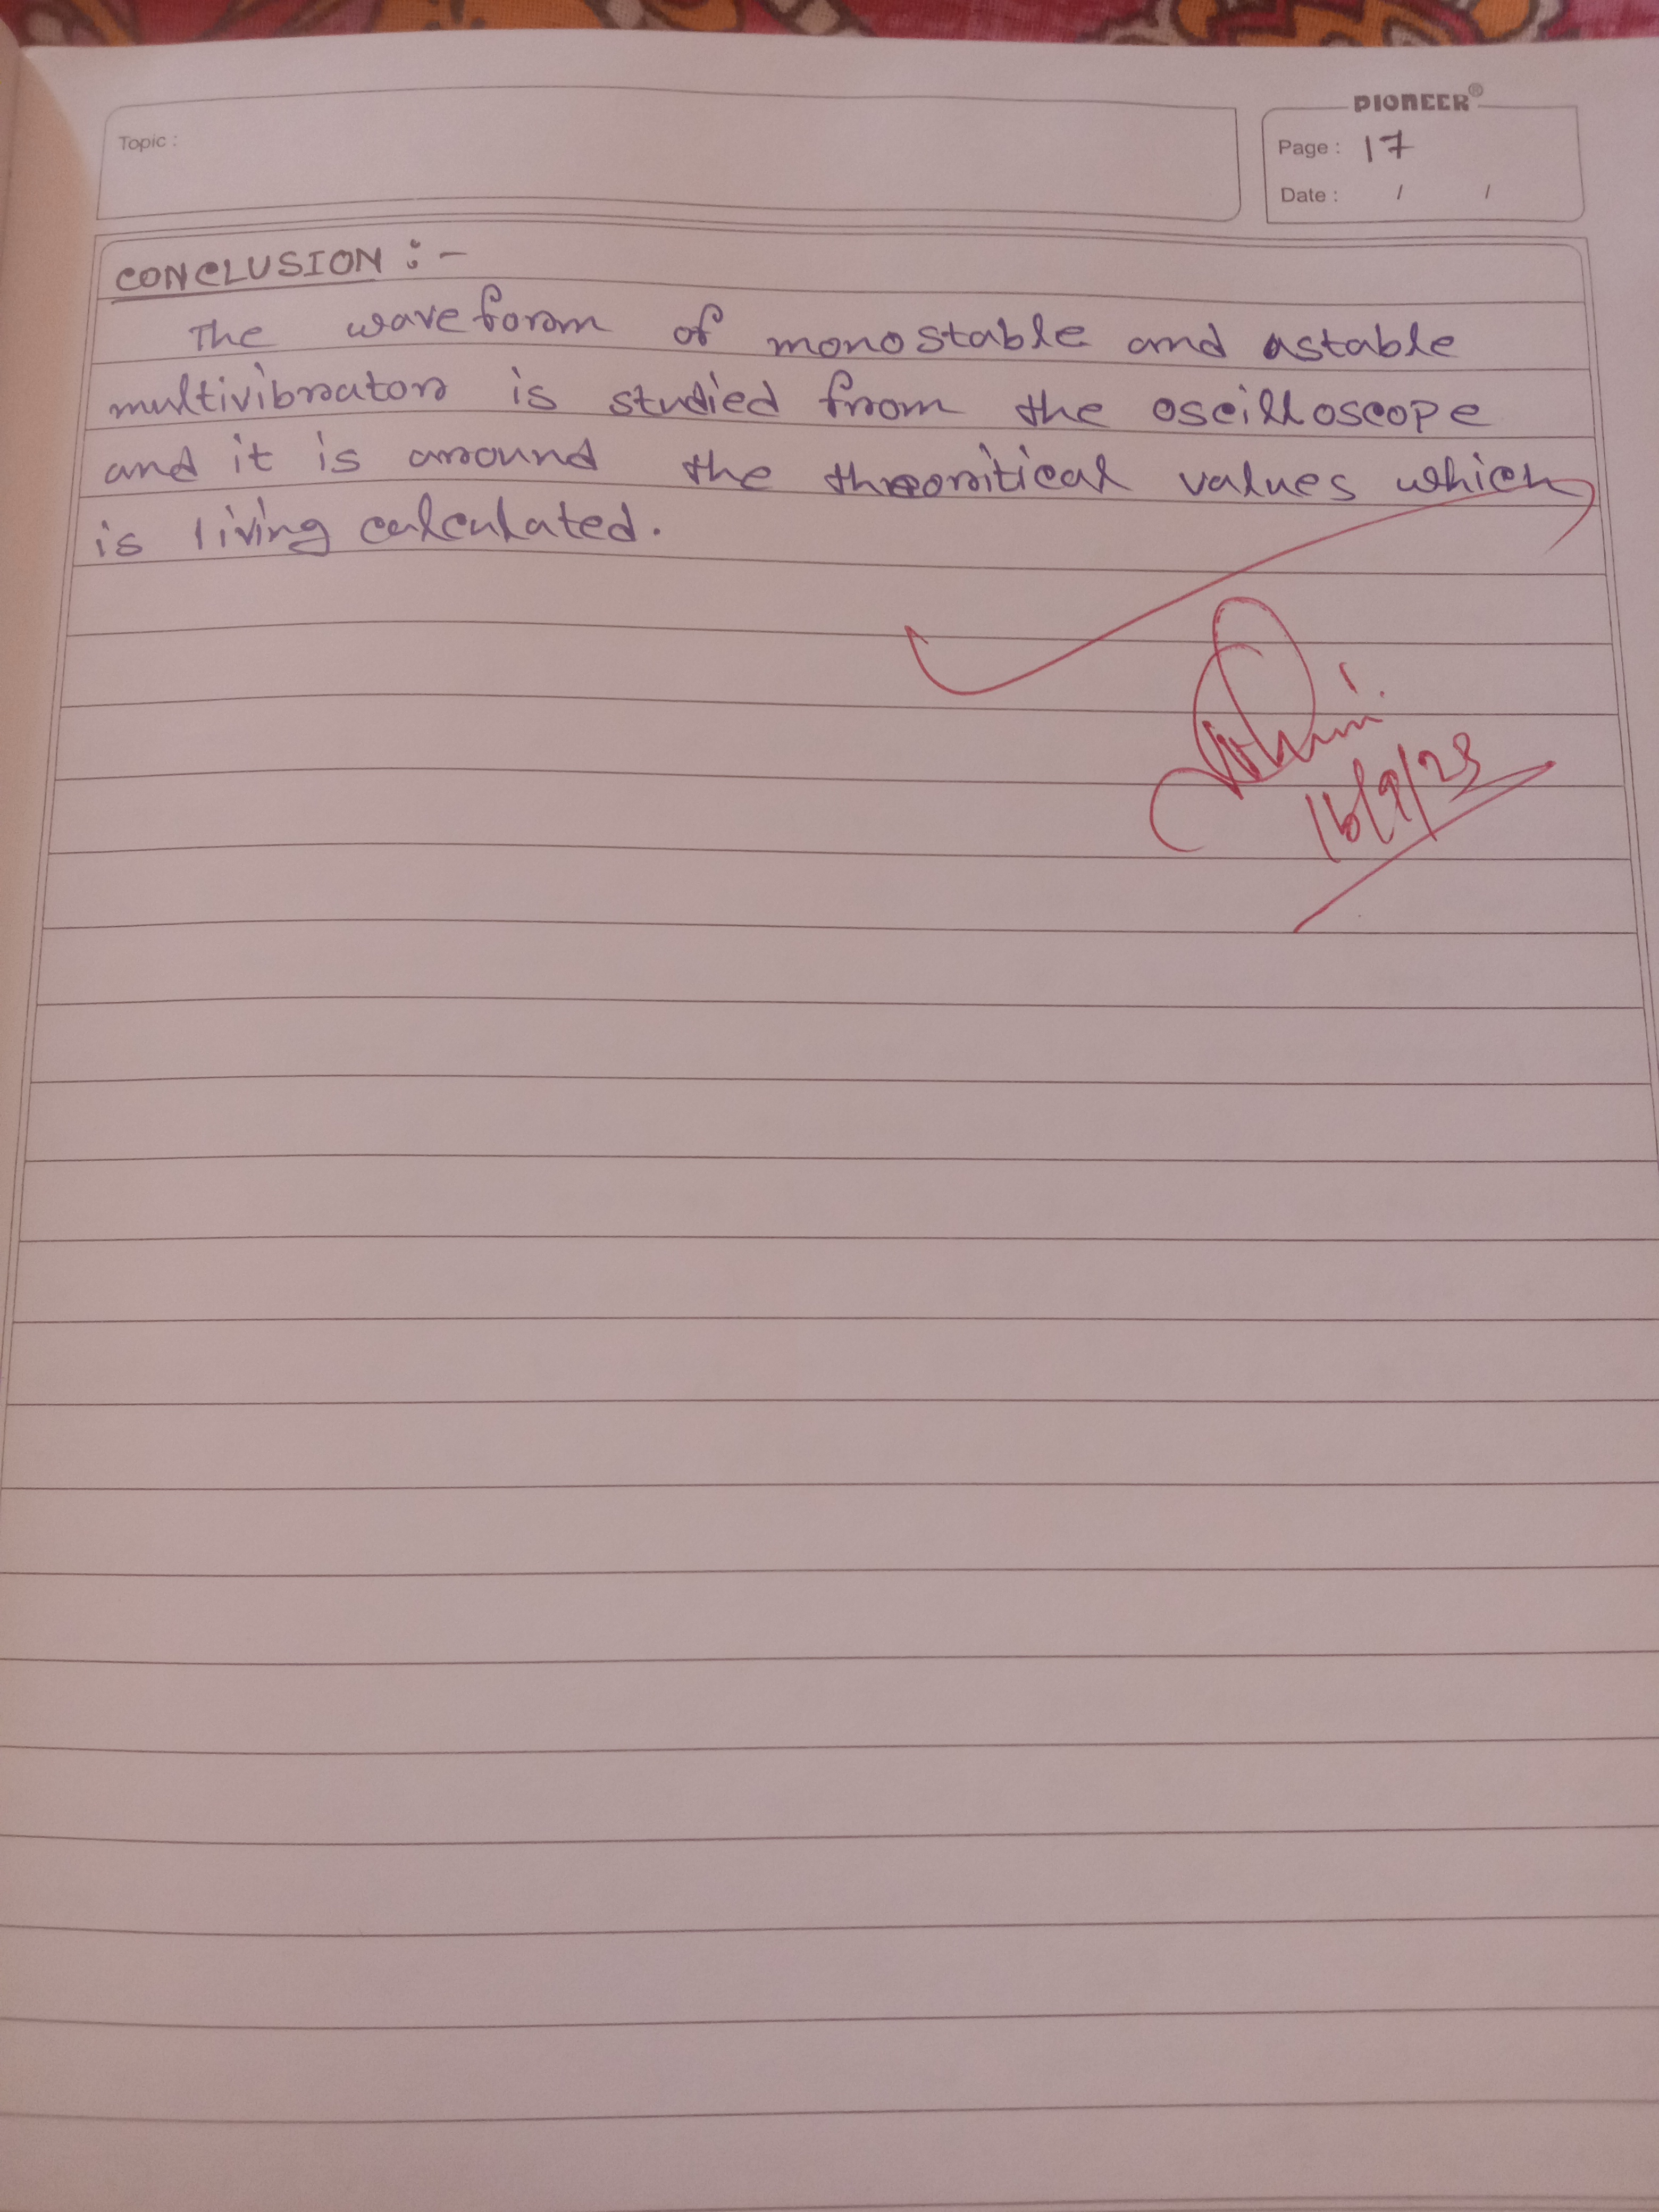 PIONEER®
Topic :
Page : 17
Date : / /
CONCLUSION :-
The waveform of monostable and astable
multivibrator is studied from the oscilloscope
and it is around the theoritical values which
is living calculated.
16/9/23